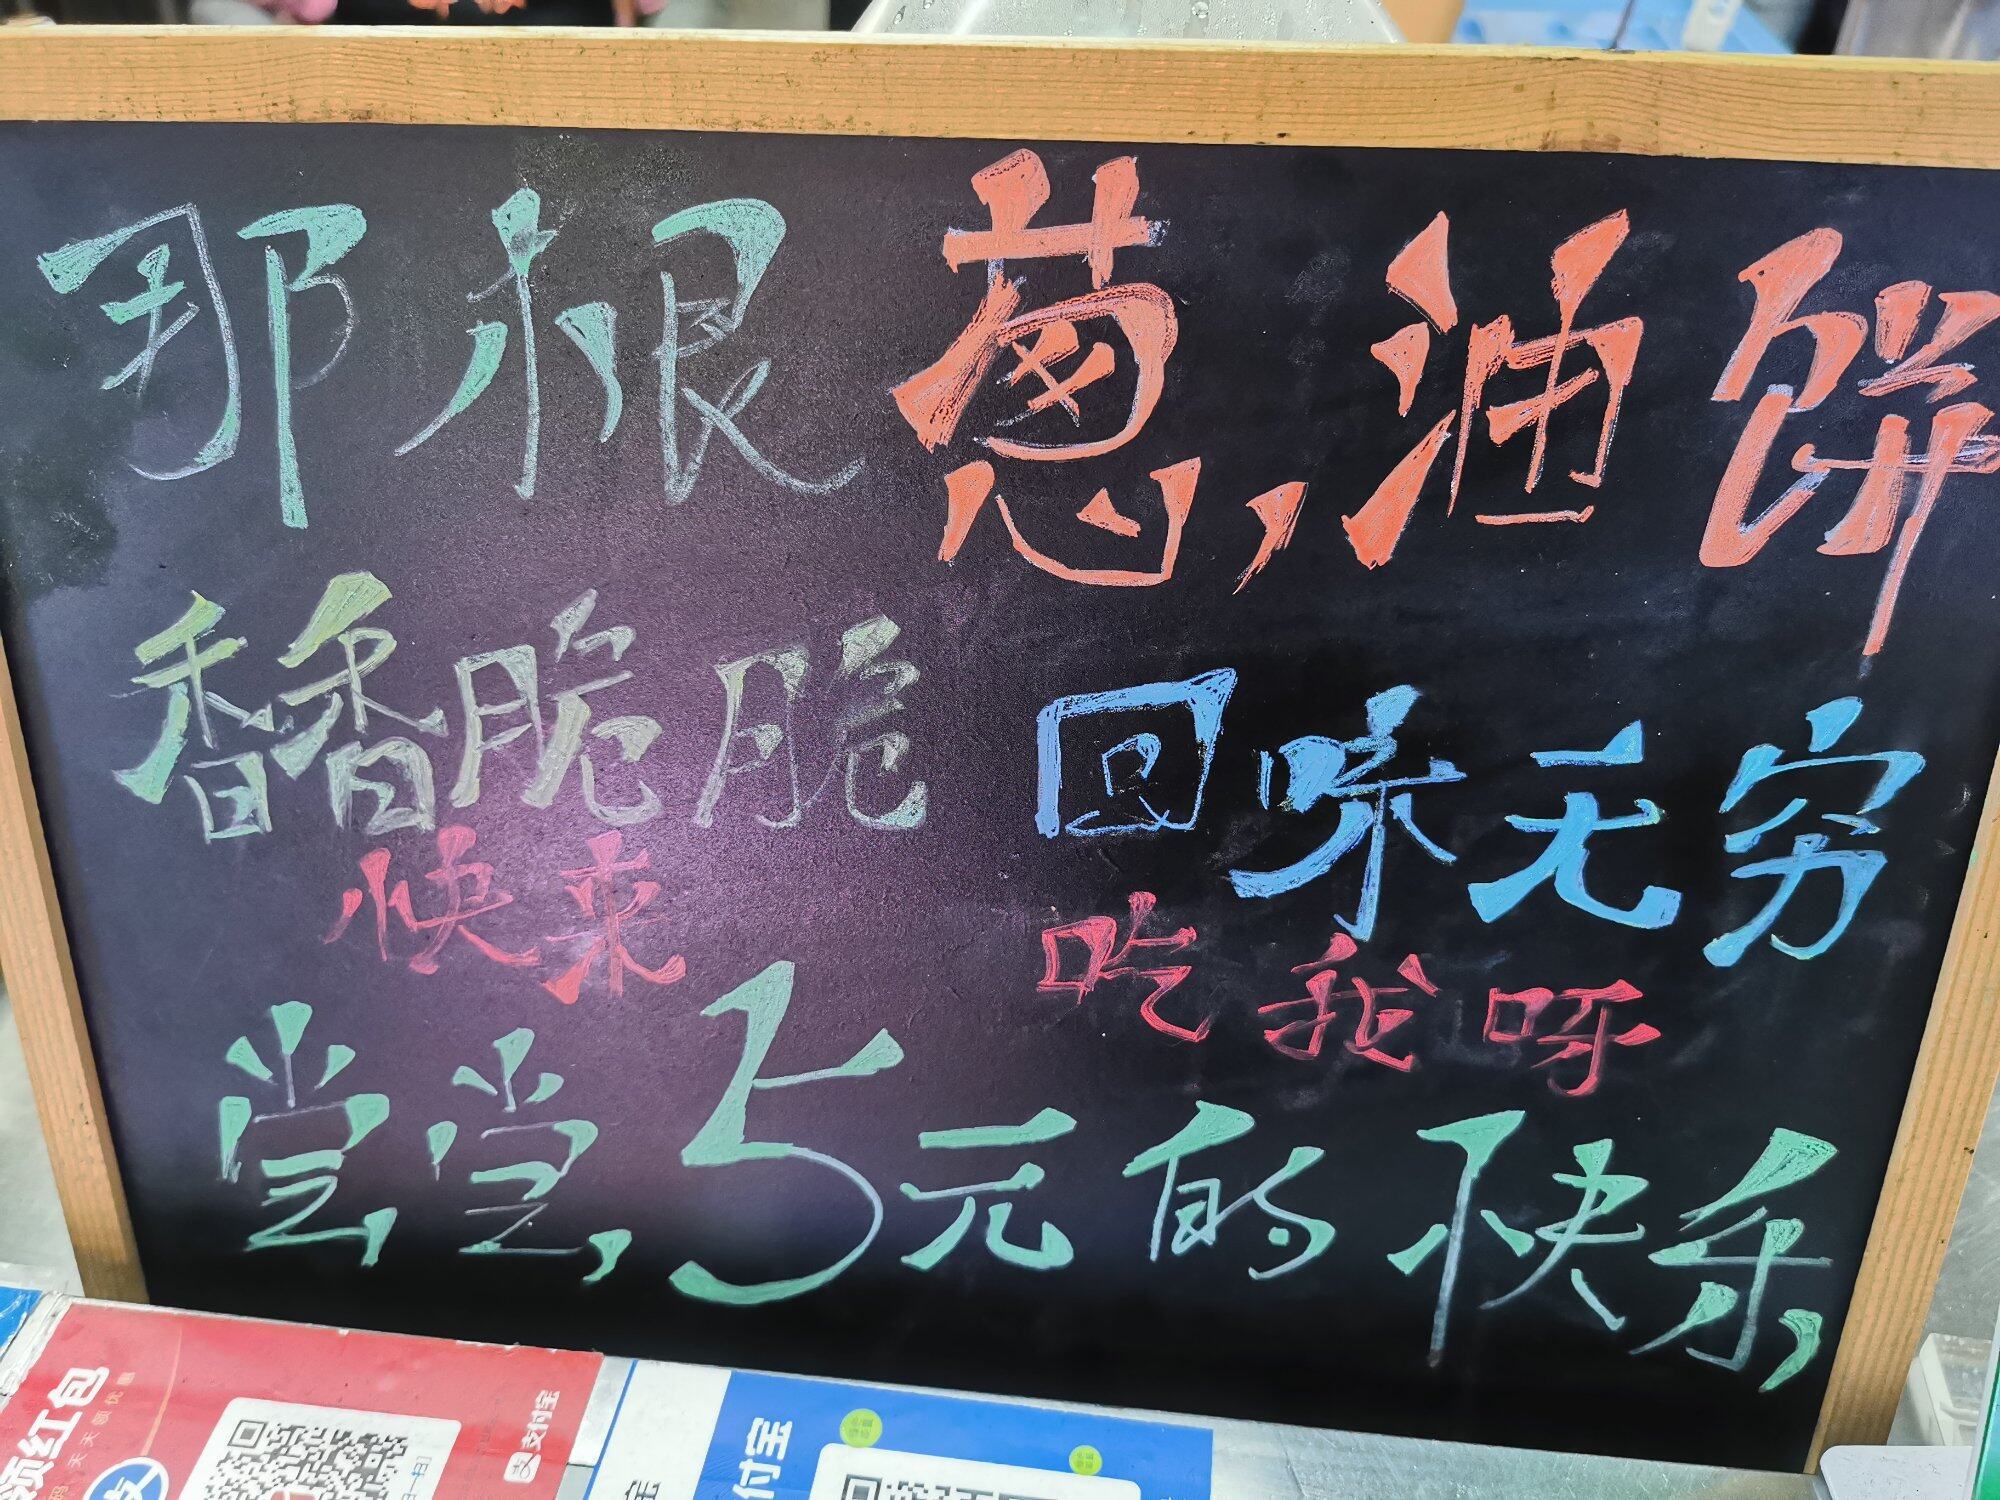 那根葱,油饼
香香脆脆 回味无穷
快来 吃我呀
尝尝,5元的快乐,
领红包
天天领优惠
支付宝
付宝